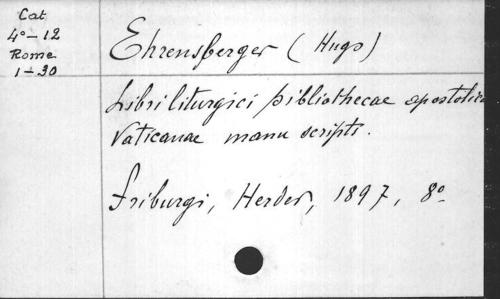 Cat
4º-12
Rome
1-30
Ehrensberger (Hugo)
Libri liturgici bibliothecae apostolica
Vaticanae manu scripti.
Friburgi, Herder, 1897, 8º